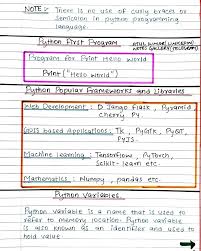 NOTE:- There is no use of curly braces or
Semicolon in python programming
language.
Python First Program
Program for Print Hello World
Print ("Hello World")
Python Popular Frameworks and Libraries
Web Development : D Jango Flask, Pyramid,
Cherry Py
GUIs based Applications : TK, PyGTK, PyQT,
PyJS.
Machine Learning : TensorFlow, PyTorch,
Scikit-learn etc.
Mathematics : Numpy, pandas etc.
Python Variables.
Python Variable is a name that is used to
refer to memory location. Python variable
is also known as an identifier and used to
hold value